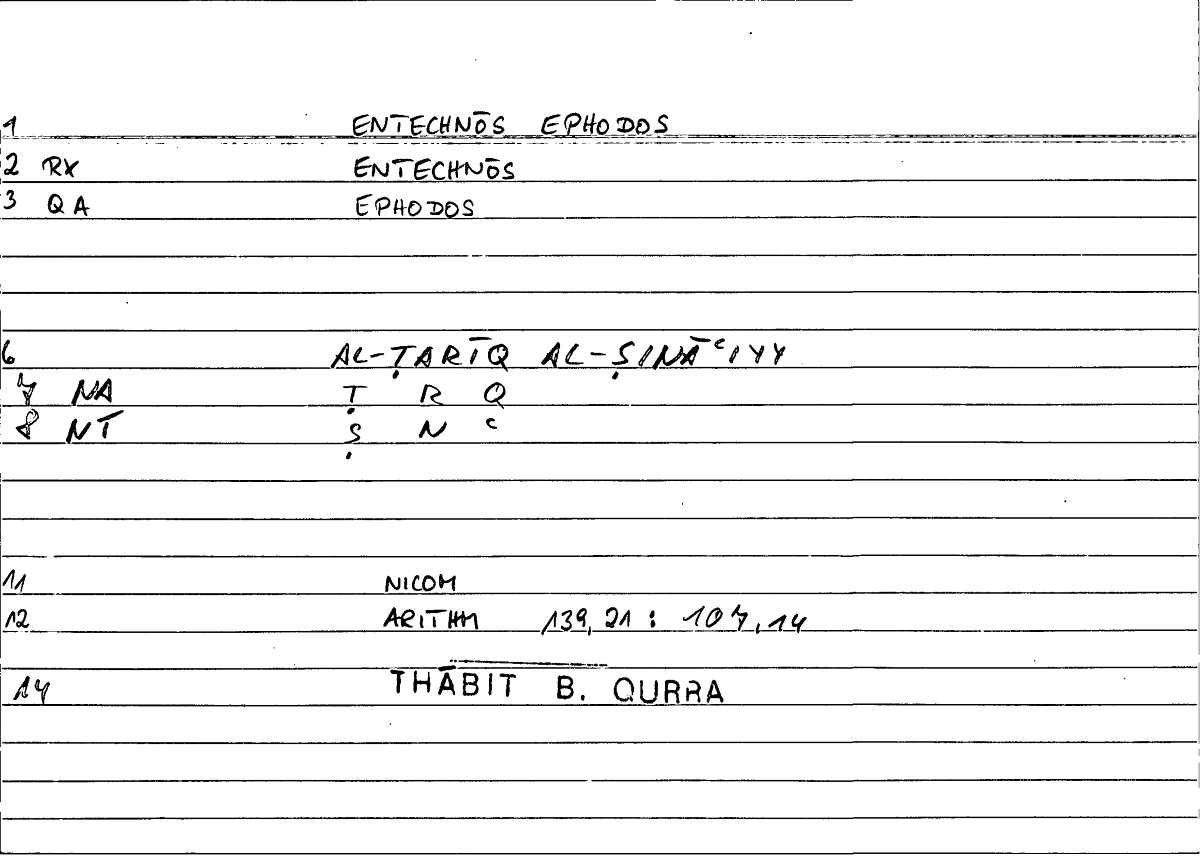 1 ENTECHNŌS EPHODOS
2 RX ENTECHNŌS
3 QA EPHODOS
6 AL-ṬARĪQ AL-ṢINĀʿIYY
7 NA Ṭ R Q
8 NT Ṣ N ʿ
11 NICOM
12 ARITHM 139,21 : 107,14
14 THĀBIT B. QURRA